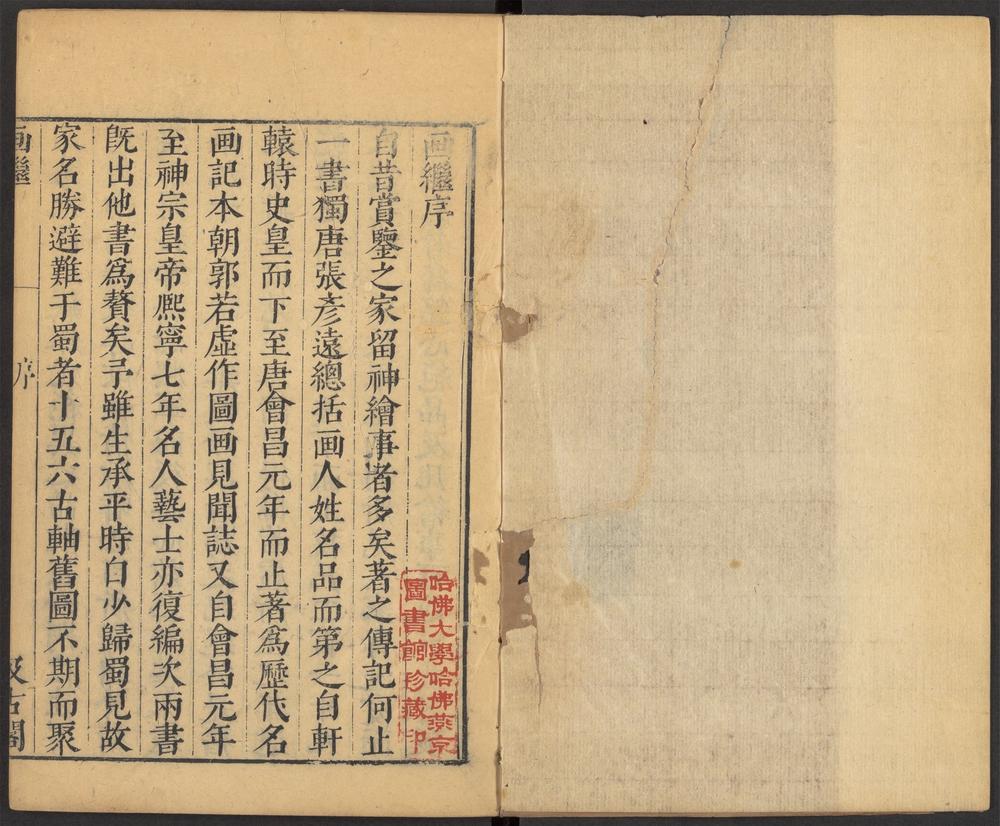 画繼序
自昔賞鑒之家留神繪事者多矣著之傳記何止
一書獨唐張彥遠總括画人姓名品而第之自軒
轅時史皇而下至唐會昌元年而止著爲歷代名
画記本朝郭若虛作圖画見聞誌又自會昌元年
至神宗皇帝熈寧七年名人藝士亦復編次兩書
旣出他書爲贅矣予雖生承平時自少歸蜀見故
家名勝避難于蜀者十五六古軸舊圖不期而聚
画繼
序
汲古閣
哈佛大學哈佛燕京
圖書館珍藏印